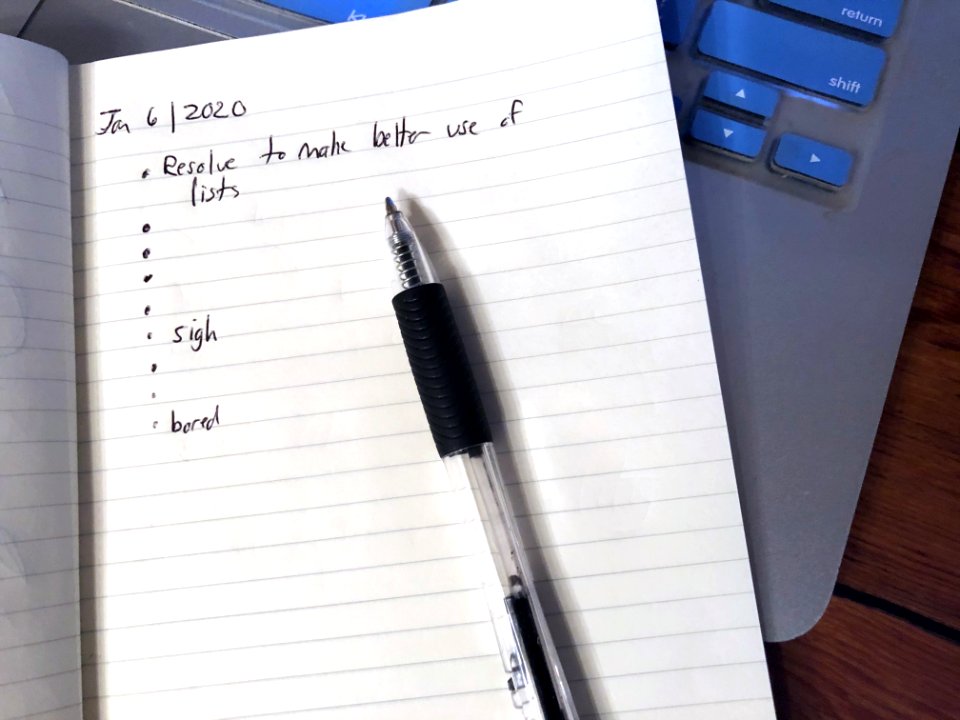 Jan 6 | 2020
• Resolve to make better use of
lists
•
•
•
•
• sigh
•
•
• bored
return
shift